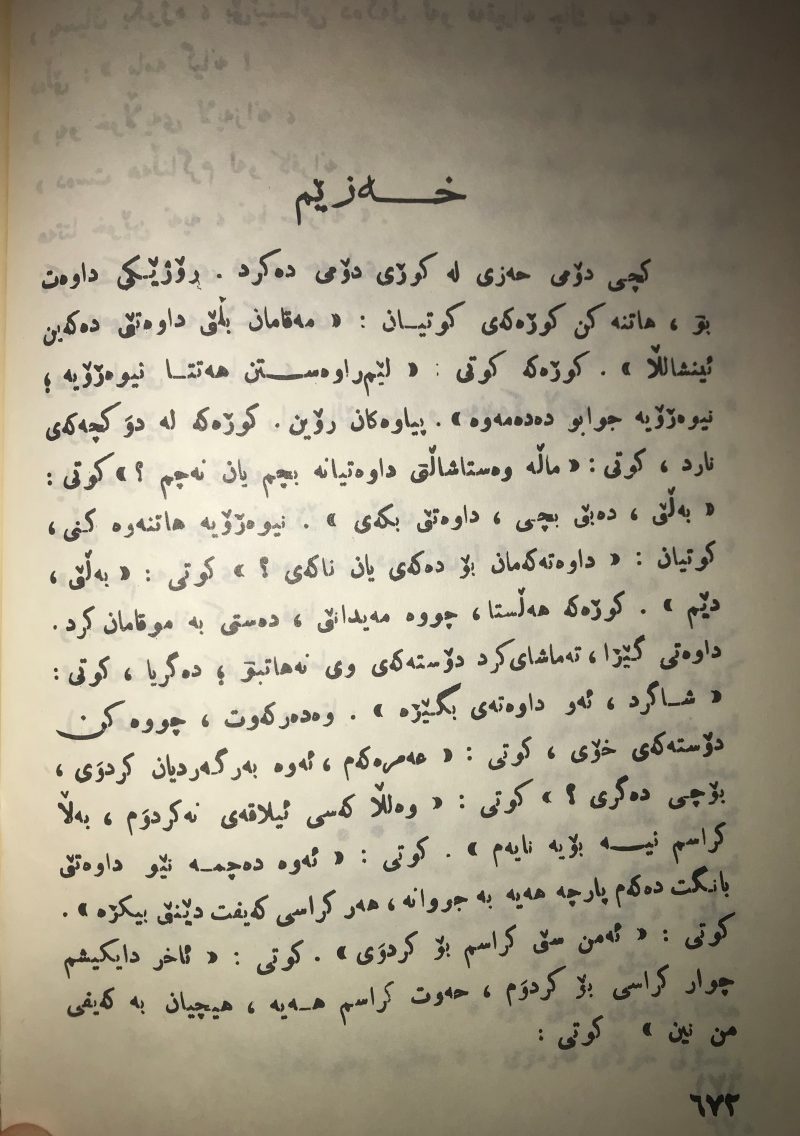 خـــەزێم
کچی دۆمی حەزی لە کوڕی دۆمی دەکرد . ڕۆژێـکی داوەت
بۆ ، هاتنە کن کوڕەکەی کوتیـان : « مەقامان بڵێ داوەتێ دەکەین
ئینشاللڵا » . کوڕەکە کوتی : « لێم‌ڕاوەســتن هەتتـا نیوەڕۆیە ؛
نیوەڕۆیە جوابو دەدەمەوە » . پیاوەکان رۆین . کوڕەکە لە دوَ کچەکەی
نارد ، کوتی : « ماڵە وەستاشاڵتی داوەتیانە بچم یان نەچم ؟ » کوتی :
« بەڵێ ، دەبێ بچی ، داوەتێ بکەی » . نیوەڕۆیە هاتنەوە کنی ،
کوتیان : « داوەتەکەمان بۆ دەکەی یان ناکەی ؟ » کوتی : « بەڵێ ،
دێم » . کوڕەکە هەڵستا ، چووە مەیدانێ ، دەستی بە موقامان کرد .
داوەتی گێڕا ، تەماشای‌کرد دۆستەکەی وی نەهاتبوَ ؛ دەگریا ، کوتی :
« شـاگرد ، ئەو داوەتەی بگـێڕە » . وەدەرکەوت ، چووە کن
دۆستەکەی خۆی ، کوتی : « عەمرەکەم ، ئەوە بەرگەردیان کردوَی ،
بۆچی دەگری ؟ » کوتی : « وەللڵا کەسی ئیلاقەی نەکردوَم ، بەڵا
کراسم نیـــە بۆیە نایەم » . کوتی : « ئەوە دەچمـە نێو داوەتێ
بانگت دەکەم پارچە هەیە بە جروانە ، هەر کراسی کەیفت دێنێ بیکڕە » .
کوتی : « ئەمن سێ کراسم بۆ کردوَی » . کوتی : « ئاخر دایکیشم
چوار کراسی بۆ کردوَم ، حەوت کراسم هـەیە ، هیچیان بە کەیفی
من نین » کوتی :
٦٧٢